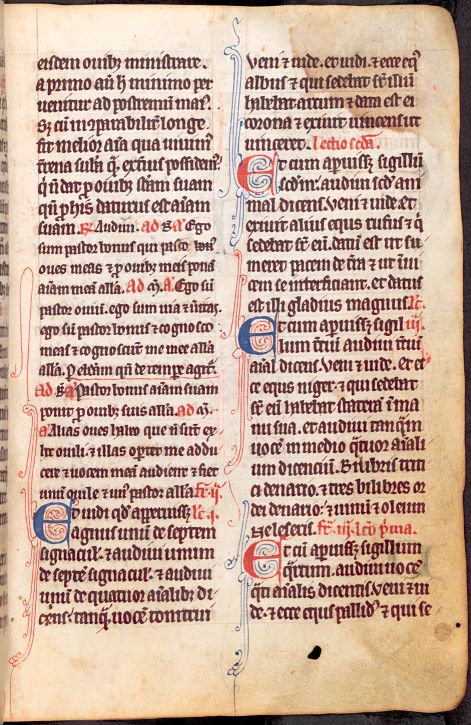 eisdem ouibus ministrare.
a primo aut h minimo per
uenitur ad postremum maius.
Sz cum inparabiliter longe
sit melior aia qua uiuimus
trena suba qua exterius possidemus
qui non dat pro ouibus suam suam
quando pro his daturus est aiam
suam. R Audiui. ad B A Ego
sum pastor bonus qui pasco
oues meas & pro ouibus meis pono
aiam mea alla. Ad M A Ego sum
pastor ouium. ego sum uia & ueritas
ego sum pastor bonus & cognosco
meas & cognoscunt me mee alla
alla.
Ad B A Pastor bonus aiam suam
ponit pro ouibus suis alla. ad M.
A Alias oues habeo que non sunt ex
hoc ouili. & illas oportet me addu
cere & uocem meam audient & fiet
unum ouile & unus pastor alla fr. ij.
Et uidi qd aperuisset lc. i.
agnus unum de septem
signaculis. & audiui unum
de septem signaculis. & audiui
unum de quatuor aialibus di
cens. tanquam uocem tonitrui
ueni & uide. et uidi. & ecce equus
albus & qui sedebat super illum
habebat arcum & data est ei
corona & exiuit uincens ut
uinceret. Lectio scda.
Et cum aperuisset sigillum
scdm. audiui scdm ani
mal dicens. ueni & uide. et
exiuit alius equus rufus & qui
sedebat super eum. datum est ut su
meret pacem de terra & ut inui
cem se interficiant. et datus
est illi gladius magnus. lc.
Et cum aperuisset sigil iij.
lum tercium audiui tercium
aial dicens. ueni & uide. et ec
ce equus niger. & qui sedebat
super eum habebat stateram in ma
nu sua. et audiui tanquam
uocem in medio quatuor aiali
um dicencium. Bilibris triti
ci denario. & tres bilibres or
dei denario. & uinum & oleum
ne leseris. fr. iij. lco prima.
Et cum aperuisset sigillum
quartum. audiui uocem
quarti aialis dicentis. ueni & ui
de. & ecce equus pallidus & qui se